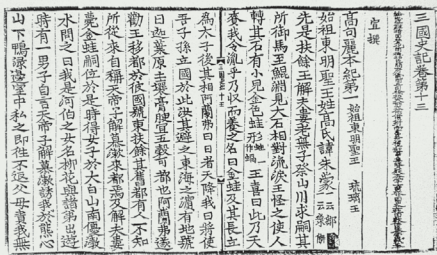 三國史記卷第十三
宣撰
高句麗本紀第一 始祖東明聖王 琉璃王
始祖東明聖王姓高氏諱朱蒙一云鄒 一云衆解
先是扶餘王解夫婁老無子祭山川求嗣其
所御馬至鯤淵見大石相對流淚王怪之使人
轉其石有小兒金色蛙形蛙一作蝸王喜曰此乃天
賚我令胤乎乃收而養之名曰金蛙及其長立
爲太子後其相阿蘭弗曰日者天降我曰將使
吾子孫立國於此汝其避之東海之濱有地號
曰迦葉原土壤膏腴宜五穀可都也阿蘭弗遂
勸王移都於彼國號東扶餘其舊都有人不知
所從來自稱天帝子解慕漱來都焉及解夫婁
薨金蛙嗣位於是時得女子於大白山南優渤
水問之曰我是河伯之女名柳花與諸弟出遊
時有一男子自言天帝子解慕漱誘我於熊心
山下鴨渌邊室中私之即往不返父母責我無